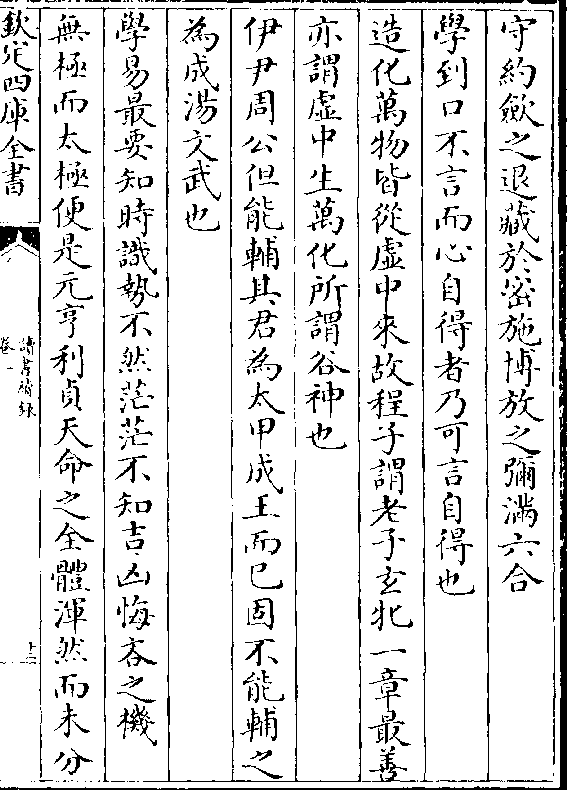 守約歛之退藏於密施博放之彌滿六合
學到口不言而心自得者乃可言自得也
造化萬物皆從虛中來故程子謂老子玄牝一章最善
亦謂虛中生萬化所謂谷神也
伊尹周公但能輔其君為太甲成王而已固不能輔之
為成湯文武也
學易最要知時識勢不然茫茫不知吉凶悔吝之機
無極而太極便是元亨利貞天命之全體渾然而未分
欽定四庫全書
讀書續錄
卷一
十二